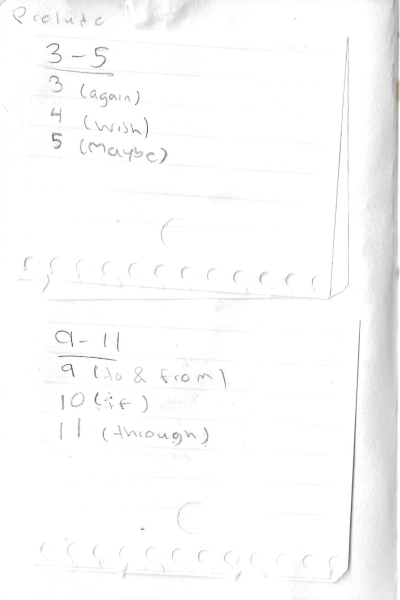 Prelude
3-5
3 (again)
4 (wish)
5 (Maybe)
9-11
9 (to & from)
10 (if)
11 (through)